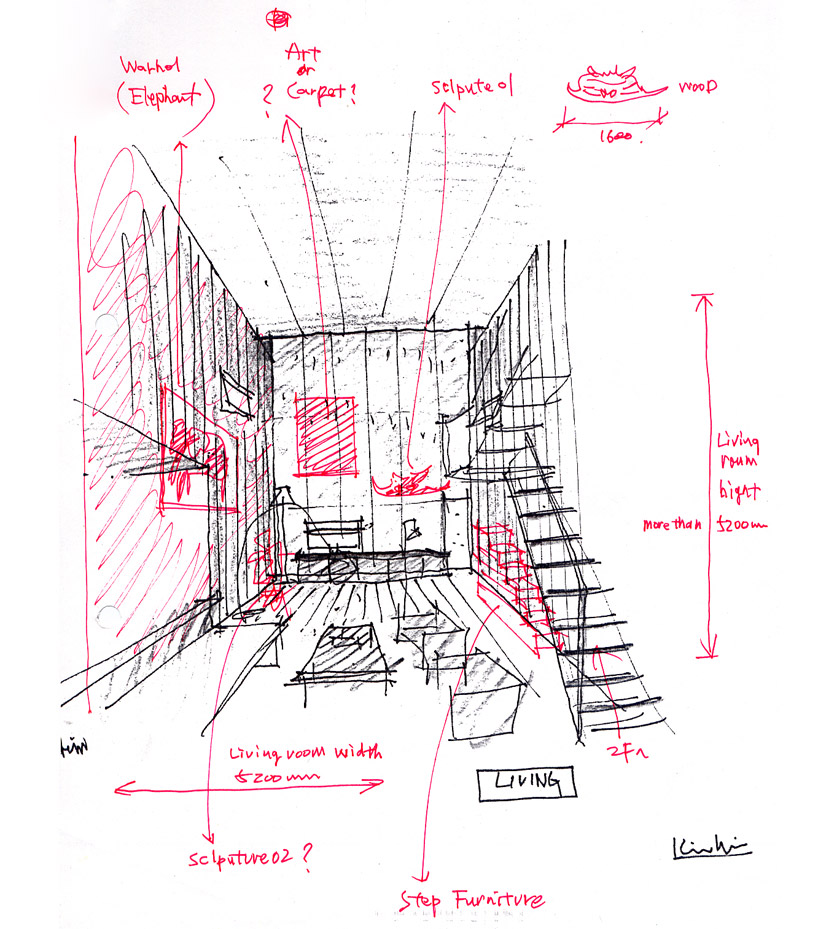 Warhol
(Elephant)
Art
or
? Carpet?
sclpute01
WOOD
1600.
Living
room
hight
more than 5200mm
Living room width
5200mm
2Fへ
LIVING
sclputure02 ?
Step Furniture